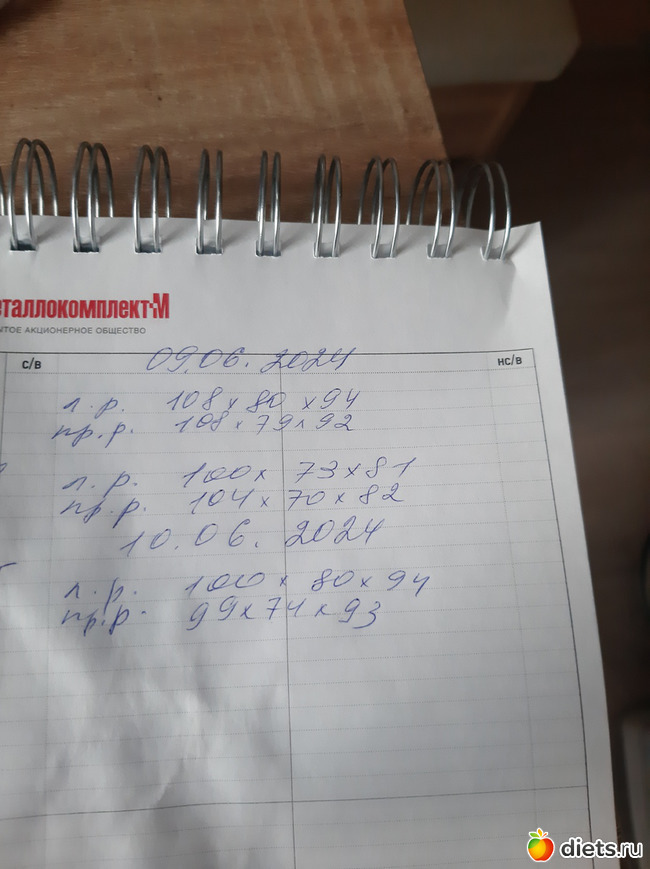 еталлокомплект-М
ЫТОЕ АКЦИОНЕРНОЕ ОБЩЕСТВО
С/В
НС/В
09.06. 2024
л.р. 108 x 80 x 94
пр.р. 108 x 79 x 92
л.р. 100 x 73 x 81
пр.р. 104 x 70 x 82
10.06. 2024
л.р. 100 x 80 x 94
пр.р. 99 x 74 x 93
diets.ru